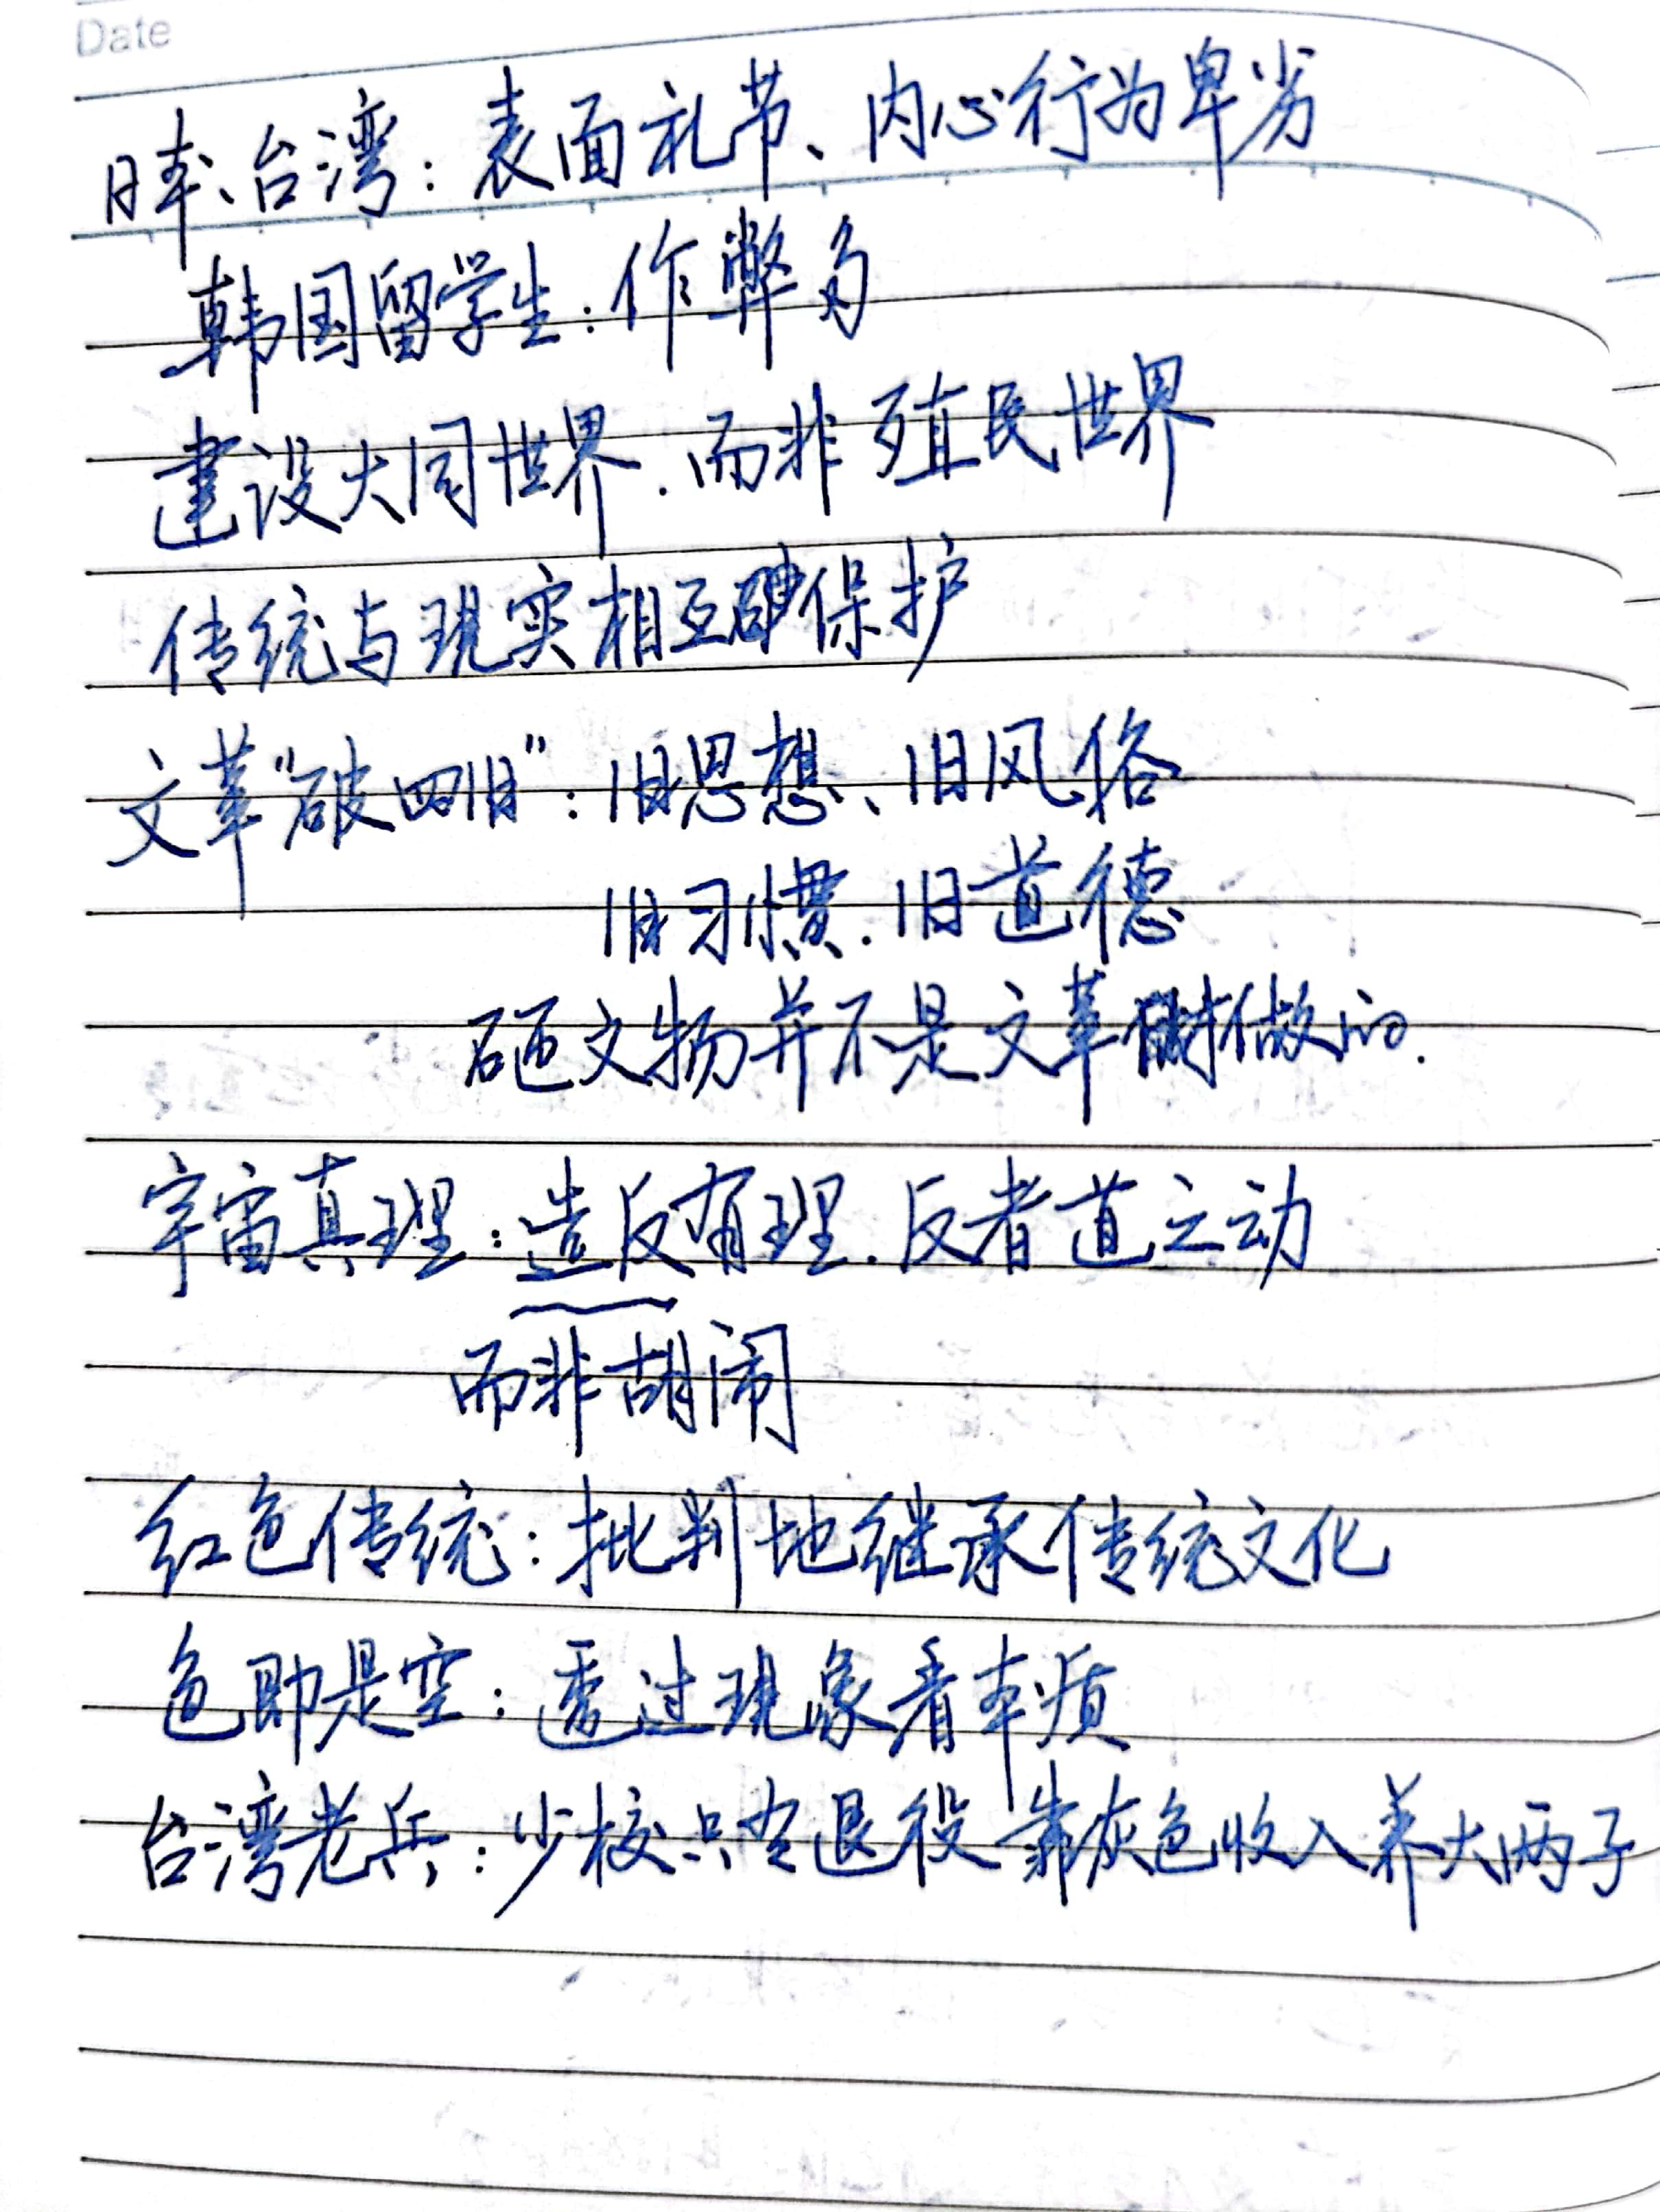 Date
日本、台湾：表面礼节、内心行为卑劣
韩国留学生：作弊多
建设大同世界.而非殖民世界
传统与现实相互保护
文革“破四旧”：旧思想、旧风俗
旧习惯.旧道德
砸文物并不是文革做的.
宇宙真理：造反有理.反者道之动
而非胡闹
红色传统：批判地继承传统文化
色即是空：透过现象看本质
台湾老兵：少校只当退役 靠灰色收入养大两子